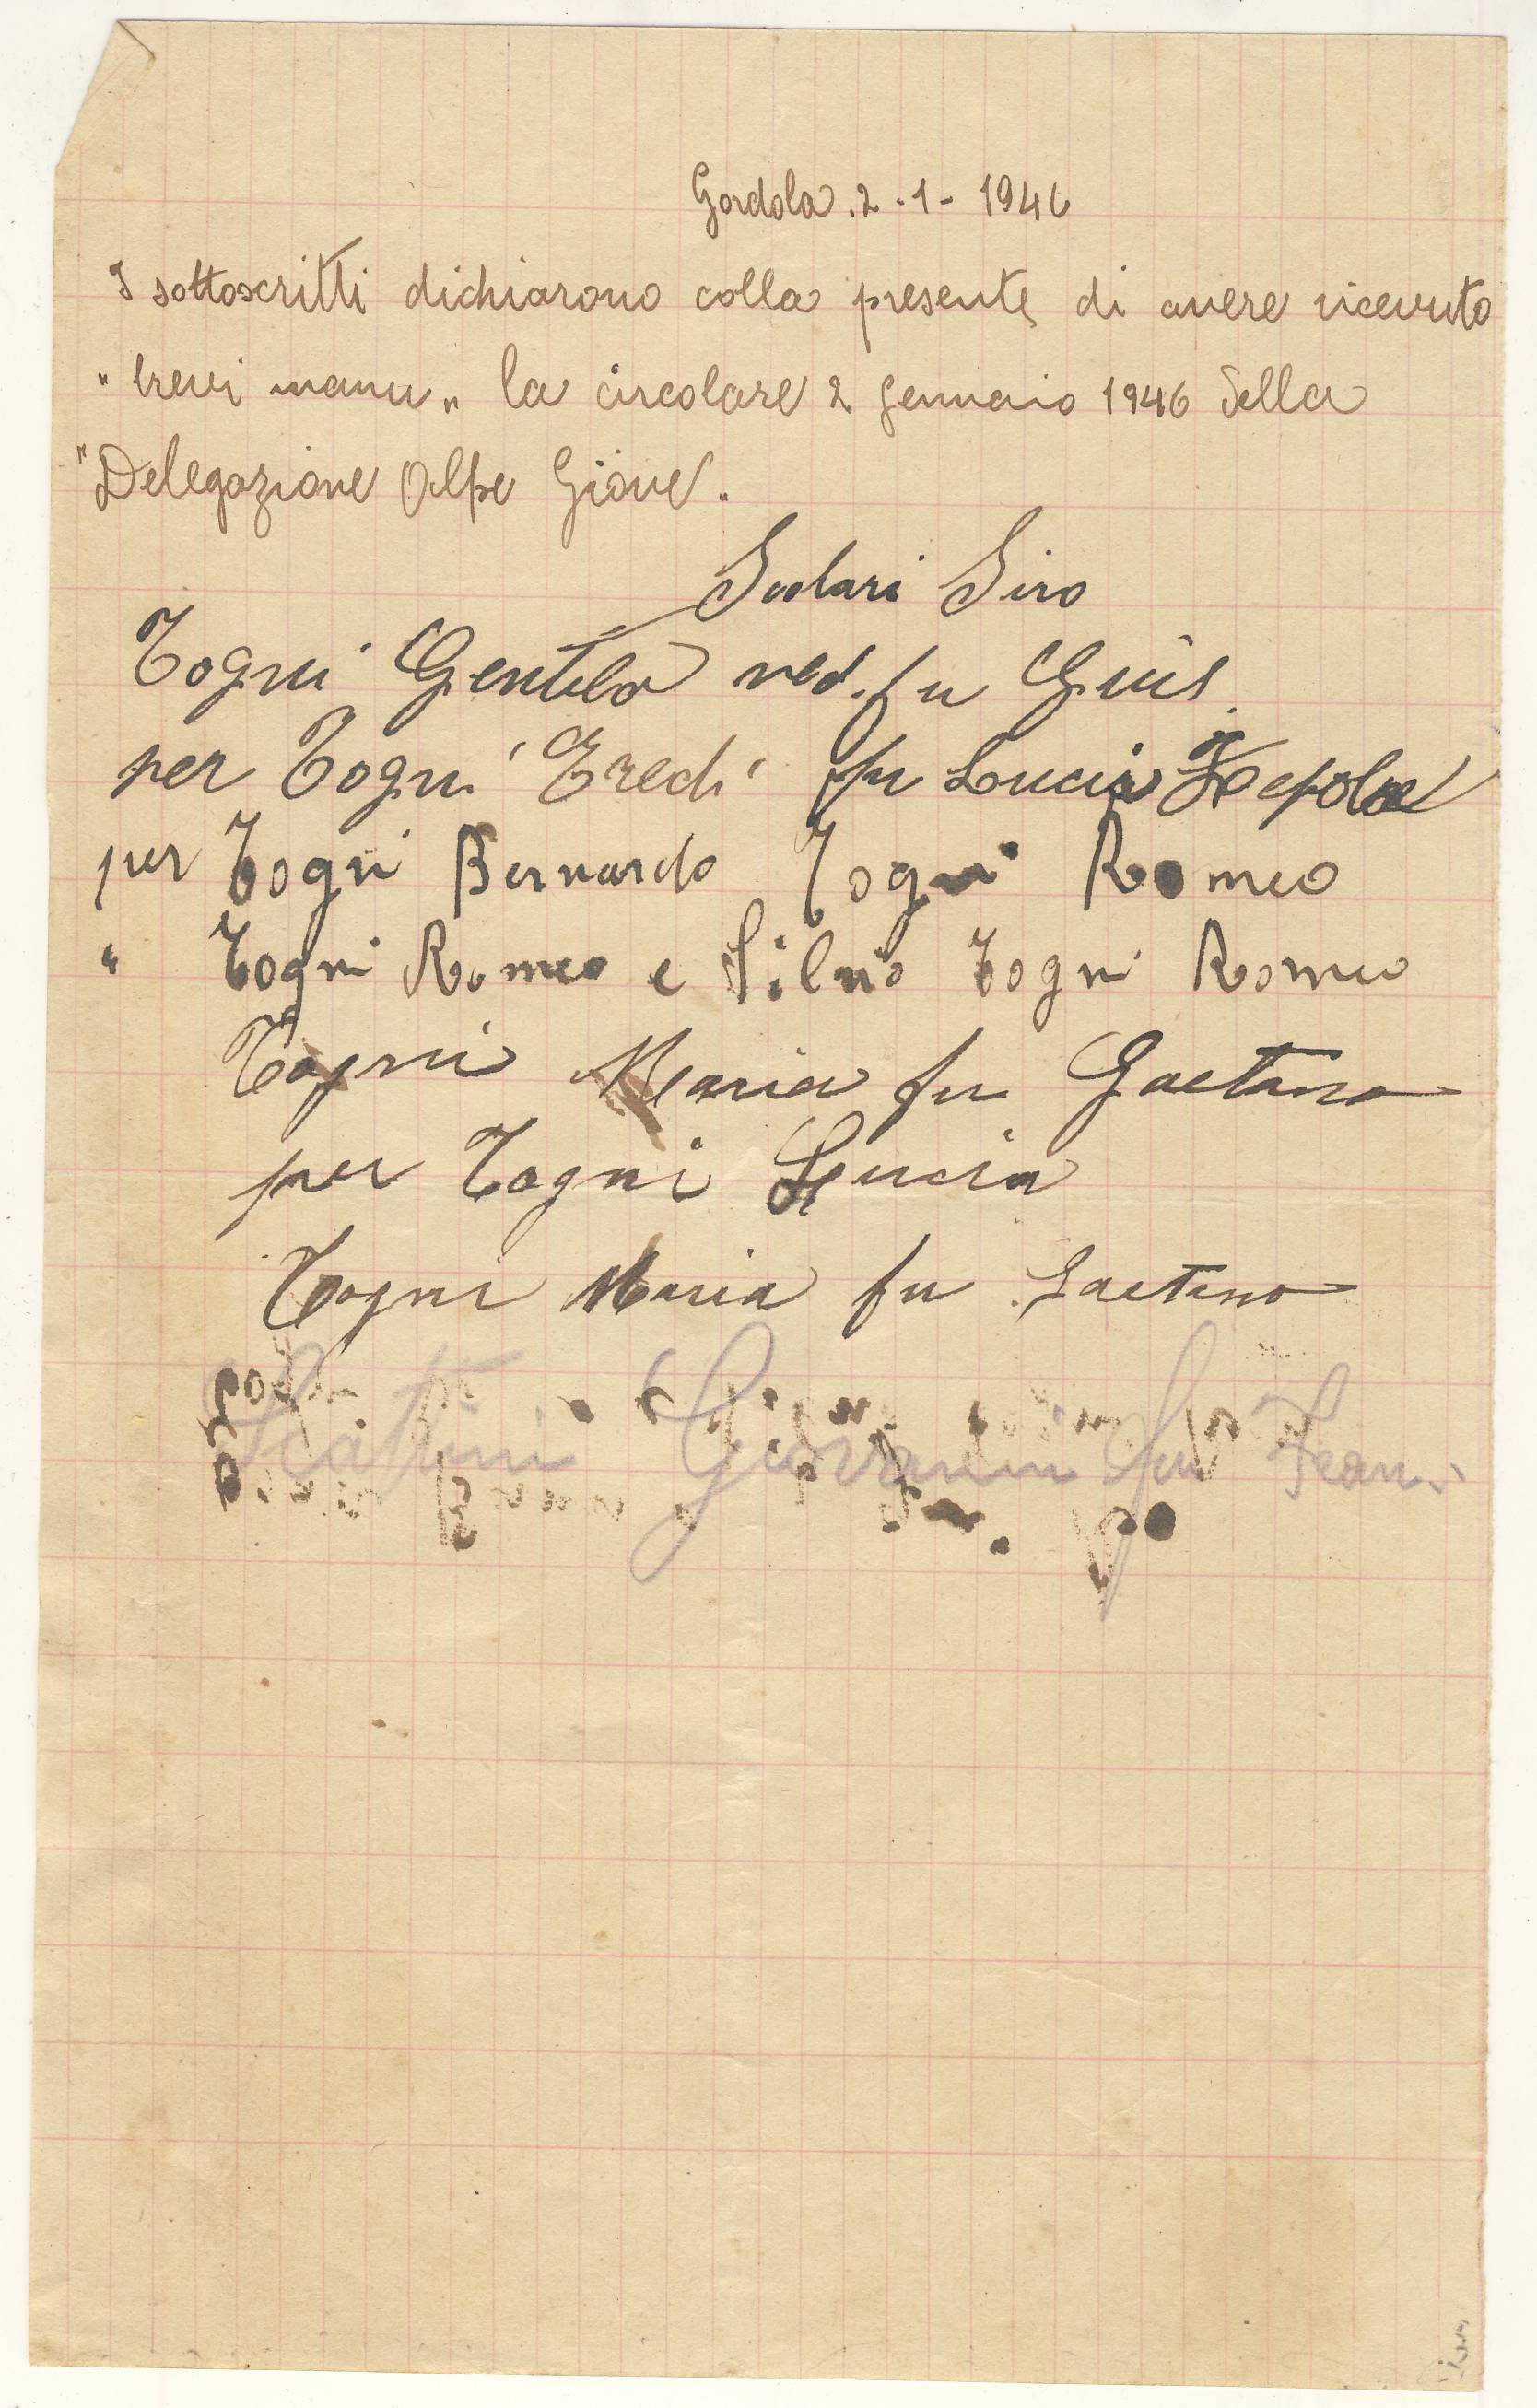 Gordola. 2.-1- 1946
I sottoscritti dichiarano colla presente di avere ricevuto
"brevi manu" la circolare 2 gennaio 1946 della
"Delegazione Alpe Giove.
Siro
Togni Gentila ved. fu Gius.
per Togni Eredi fu Lucia
per Togni Bernardo Togni Romeo
" Togni Romeo e Silvio Togni Romeo
Togni Maria fu Gaetano
per Togni Lucia
Togni Maria fu Gaetano
Giovanni fu Fran.